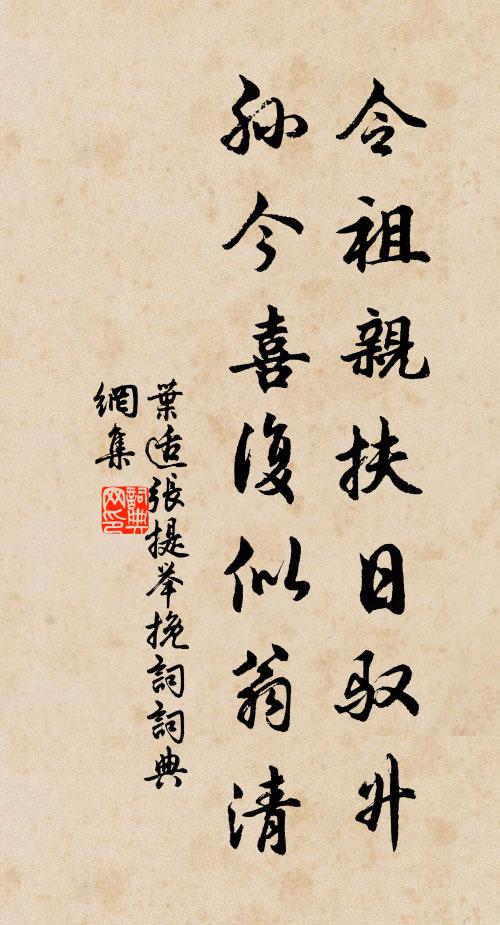 令祖親扶日驭升
孙今喜復似翁清
葉适張提举挽詞詞典
網集
詞典网印